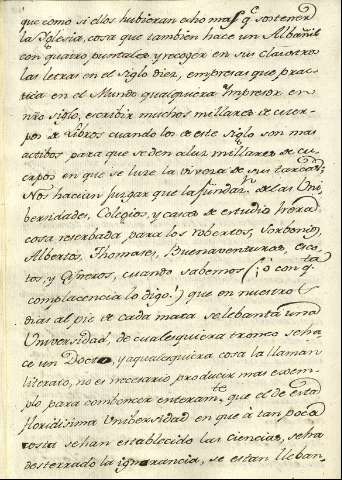 que como si ellos hubieran echo mas q.e sostener
la Yglesia, cosa que tambien hace un Albañil
con quatro puntales, y recoger en sus claustros
las letras en el Siglo diez, empresas que prac-
tica en el Mundo qualquiera Impresor en
nro siglo, escribir muchos millares de cuer-
pos de libros cuando los de este Siglo son mas
actibos para que se den a luz millares de cu-
erpos en que se luze la de sus tareas;
Nos hacian juzgar que la fundaz.n de las Uni-
bersidades, Colegios, y casas de estudio hera
cosa reserbada para los robertos, Sorbonas,
Albertos, Thomases, Buenaventuras, Esco-
tos, y Cisneros, cuando sabemos (¡o con q.ta
complacencia lo digo!) que en nuestros
dias al pie de cada mata se lebanta una
Universidad, de cualesquiera tronco se ha-
ce un Docto, y a qualesquiera cosa la llaman
literato, no es necesario producir mas exem-
plo para combencer enteram.te que el de esta
floridisima Unibersidad en que à tan poca
costa se han establecido las ciencias, se ha
desterrado la ignorancia, se estan lleban-